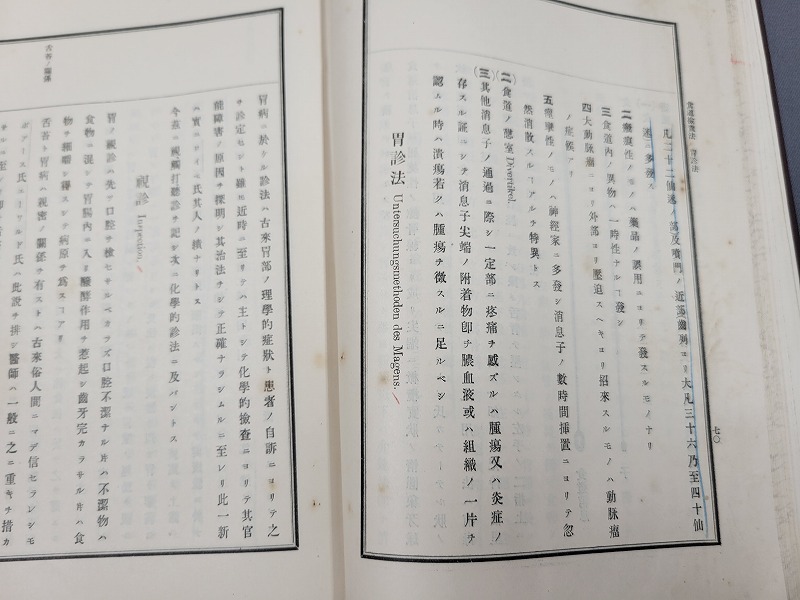 食道檢査法 胃診法
七〇
凡二十二仙迷ノ部及噴門ノ近部齒列ヨリ大凡三十六乃至四十仙
迷ニ多發ス
二瘢痕性ノモノハ藥品ノ誤用ニヨリテ發スルモノナリ
三食道內ノ異物ハ一時性ナルヿ發シ
四大動脉瘤ニヨリ外部ヨリ壓迫スヘキヨリ招來スルモノハ動脉瘤
ノ症候アリ
五痙攣性ノモノハ神經家ニ多發シ消息子ノ數時間揷置ニヨリテ忽
然消散スルヿアルヲ特異トス
(二)食道ノ憩室 Divertikel.
(三)其他消息子ノ通過ニ際シ一定部ニ疼痛ヲ感ズルハ腫瘍又ハ炎症ノ
存スル証ニシテ消息子尖端ノ附着物卽チ膿血液或ハ組織ノ一片ヲ
認ムル時ハ潰瘍若クハ腫瘍ヲ徵スルニ足ルベシ
胃診法 Untersuchungsmethoden des Magens.
胃病ニ於シル診法ハ古來胃部ノ理學的症狀ト患者ノ自訴ニヨリテ之
ヲ診定セシト雖𪜈近時ニ至リテハ主トシテ化學的檢查ニヨリテ其官
能障害ノ原因ヲ探明シ其治法ヲシテ正確ナラシムルニ至レリ此一新
ハ實ニロイベ氏其人ノ績ナリトス
今茲ニ視觸打聽診ヲ記シ次ニ化學的診法ニ及バントス
視診 Inspection.
胃ノ視診ハ先ツ口腔ヲ檢セサルベカラズ口腔不潔ナル片ハ不潔物ハ
食物ニ混シテ胃腸內ニ入リ醱酵作用ヲ惹起シ齒牙完カラサル片ハ食
物ヲ細嚼シ得スシテ病原ヲ爲スヿアリ
舌苔ト胃病ハ親密ノ關係ヲ有ストハ古來俗人間ニマデ信セラレシモ
ボアース氏エーワルド氏ハ此說ヲ排シ醫師ハ一般ニ之ニ重キヲ措カ
舌苔ノ關係